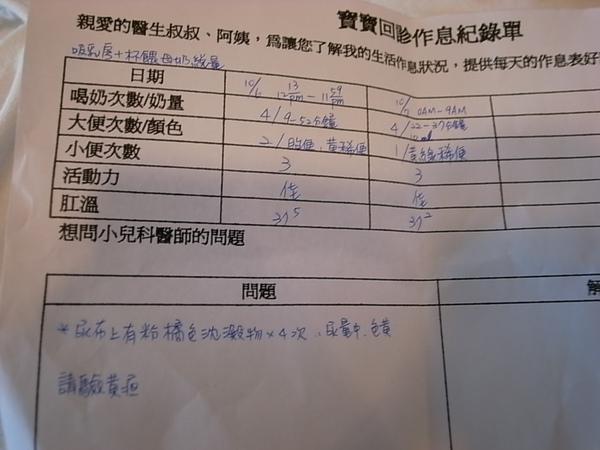 寶寶回診作息紀錄單
親愛的醫生叔叔、阿姨，為讓您了解我的生活作息狀況，提供每天的作息表好
吸乳房+杯餵母奶
日期 10/ 12 13 pm - 11 59 pm 10/ 0AM-9AM
喝奶次數/奶量 4/9-52分鐘 4/22-37分鐘
大便次數/顏色 2/ 便、黃稀便 1/黃綠稀便
小便次數 3 3
活動力 佳 佳
肛溫 37.5 37.2
想問小兒科醫師的問題
問題
*尿布上有粉橘色沈澱物×4次、尿量中、色黃
請驗黃疸